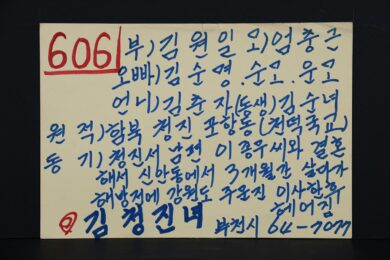 606 부) 김원일 모) 엄중근
오빠) 김순경. 순모. 운모
언니) 김춘자 (동생) 김순녀
원적) 함북 청진 포항동 (천덕국교)
동기) 청진서 남편 이종우씨와 결혼
해서 신안동에서 3개월간 살아가
해방전에 강원도 주문진 이사한후
헤어짐
김정진녀 부천시 64-7077